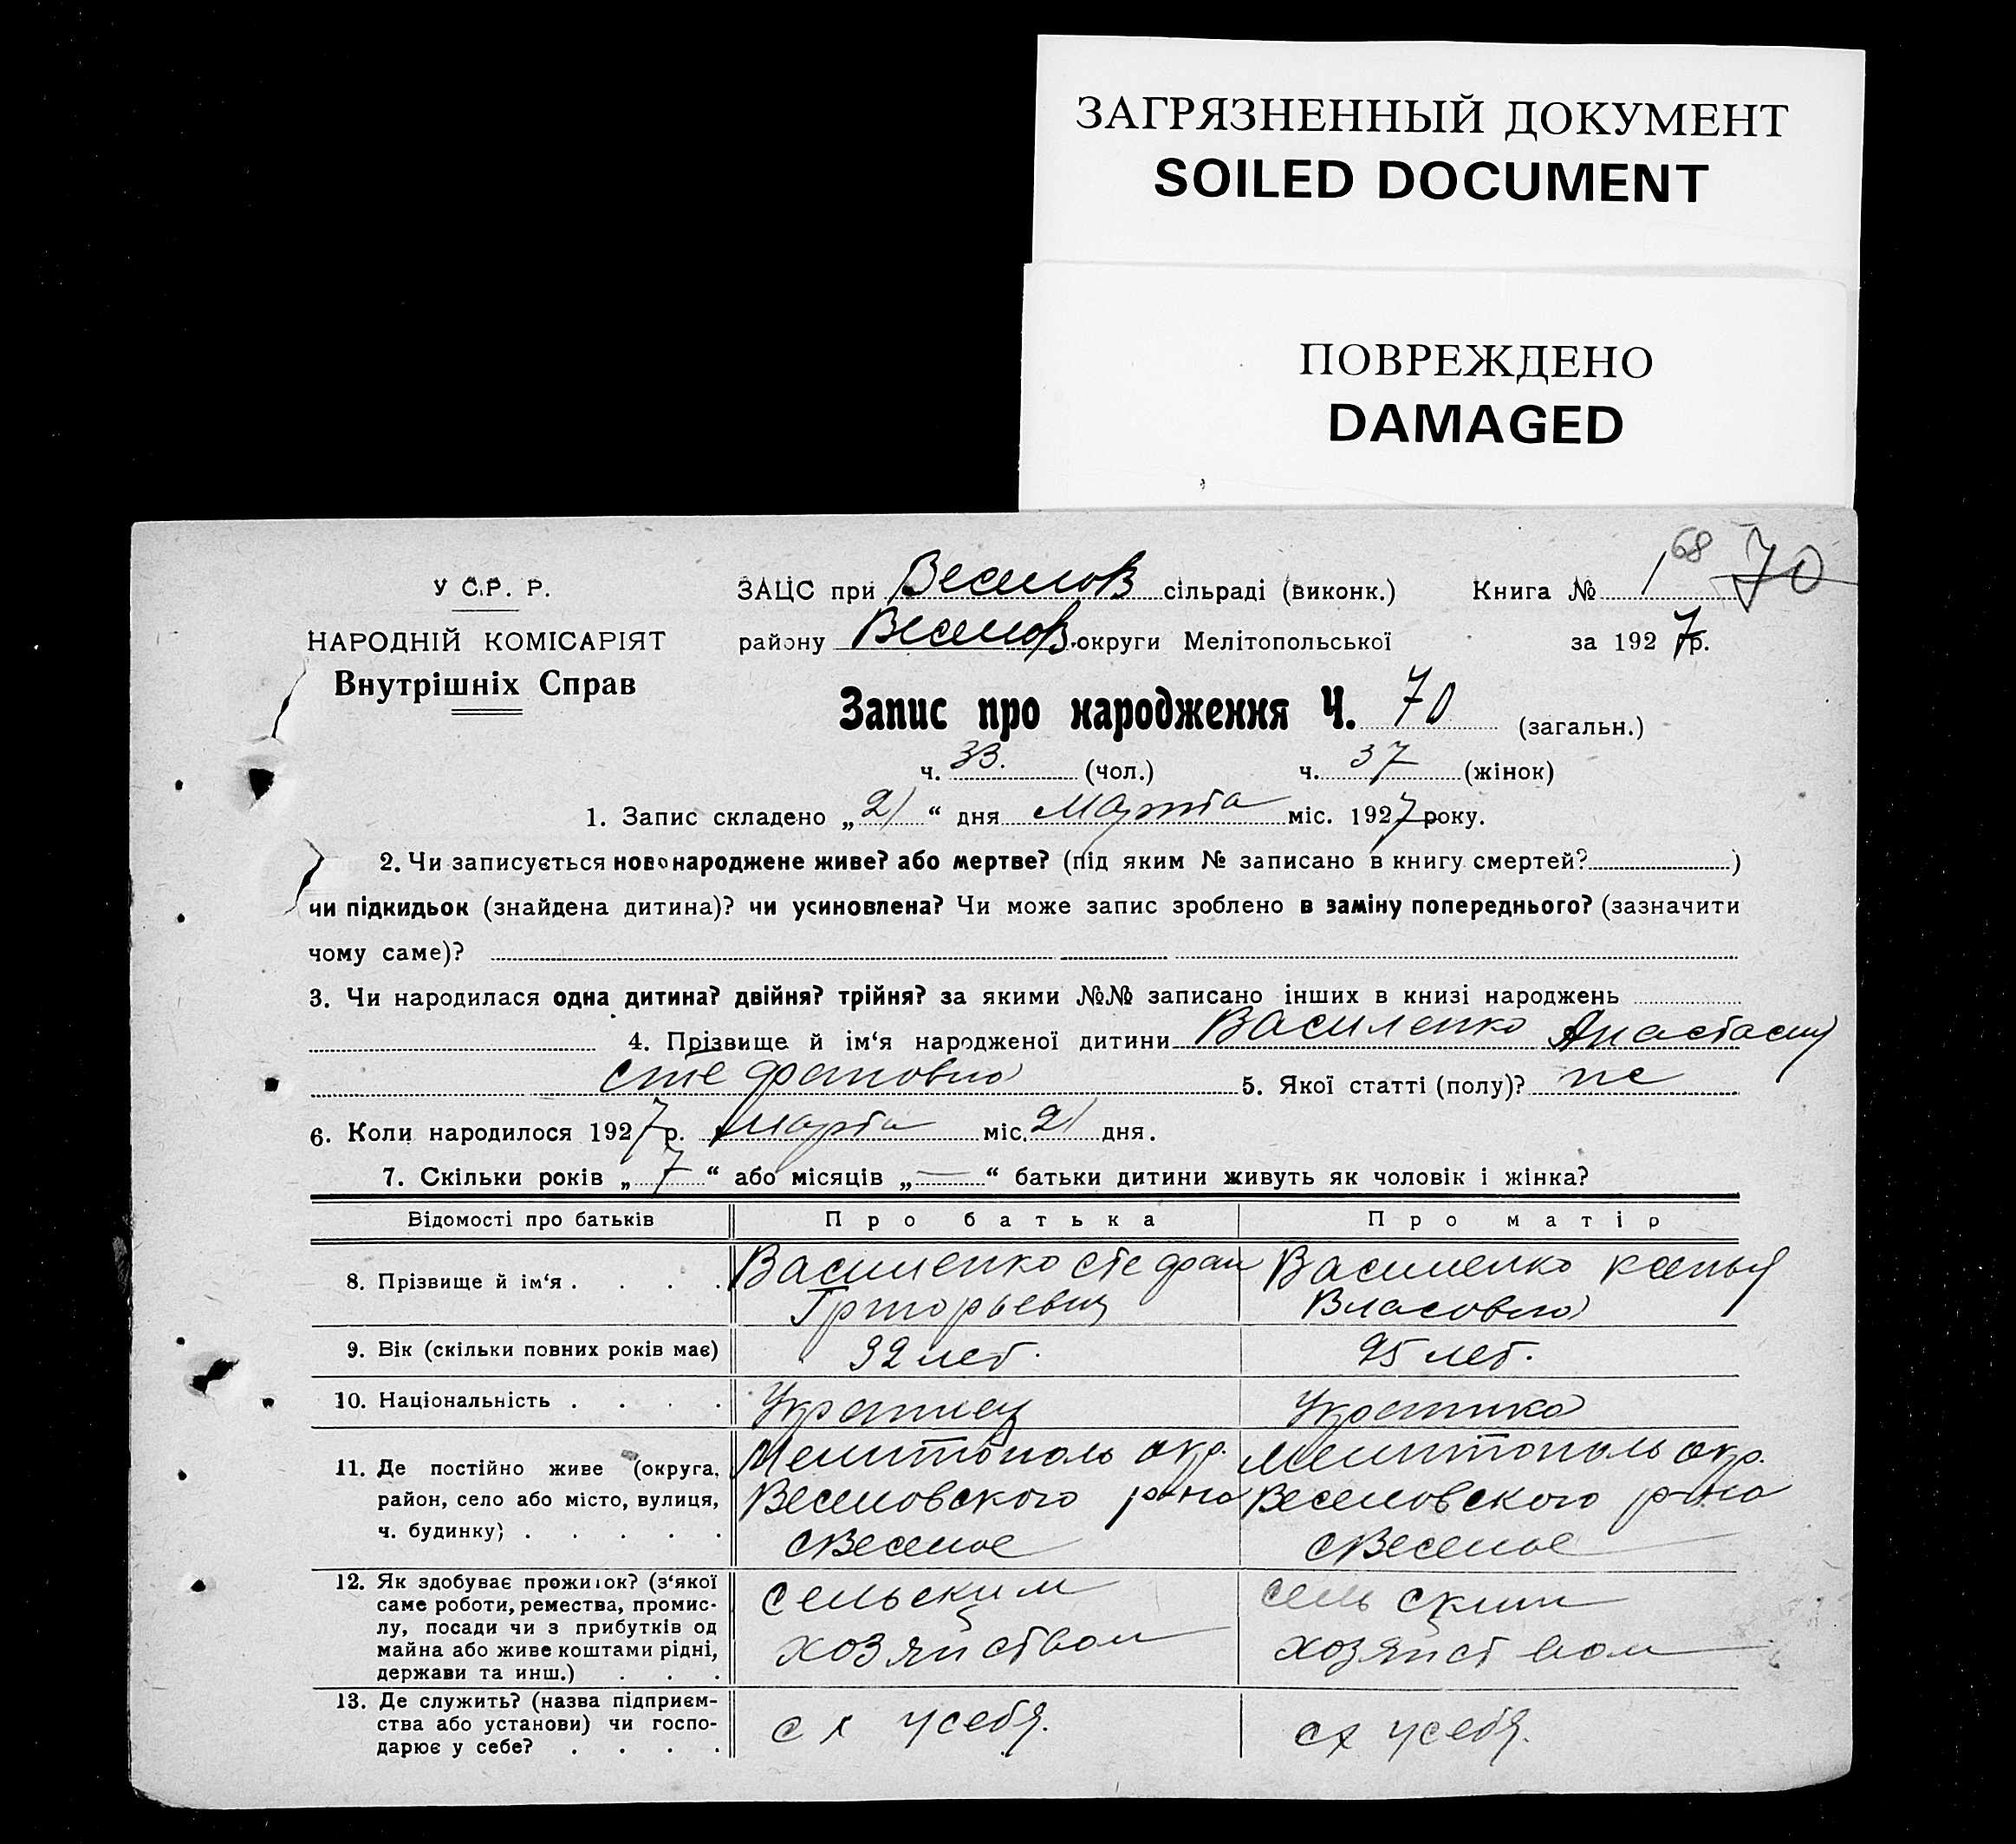 ЗАГРЯЗНЕННЫЙ ДОКУМЕНТ
SOILED DOCUMENT
ПОВРЕЖДЕНО
DAMAGED
68 70
У С.Р. Р.
НАРОДНІЙ КОМІСАРІЯТ
Внутрішніх Справ
ЗАЦС при Веселов сільраді (виконк.) Книга № 1
району Веселов. округи Мелітопольської за 1927 р.
Запис про народження Ч. 70 (загальн.)
ч. 33. (чол.) ч. 37 (жінок)
1. Запис складено „21“ дня Марта міс. 1927 року.
2. Чи записується новонароджене живе? або мертве? (під яким № записано в книгу смертей? )
чи підкидьок (знайдена дитина)? чи усиновлена? Чи може запис зроблено в заміну попереднього? (зазначити
чому саме)?
3. Чи народилася одна дитина? двійня? трійня? за якими №№ записано інших в книзі народжень
4. Прізвище й ім‘я народженої дитини Василенко Анастасия
Стефановна 5. Якої статті (полу)? жс
6. Коли народилося 1927 р. Марта міс. 21 дня.
7. Скільки років „7“ або місяців „—“ батьки дитини живуть як чоловік і жінка?
Відомості про батьків Про батька Про матір
8. Прізвище й ім‘я . . . . Василенко Стефан Григорьевич Василенко Ксенья Власовна
9. Вік (скільки повних років має) 32 лет. 25 лет.
10. Національність . . . . Украинец Украинка
11. Де постійно живе (округа, Мелитополь окр. Мелитополь окр.
район, село або місто, вулиця, Веселовского р-на Веселовского р-на
ч. будинку) . . . . . с Веселое с Веселое
12. Як здобуває прожиток? (з‘якої сельским сельским
саме роботи, ремества, промис-
лу, посади чи з прибутків од хозяйством хозяйством
майна або живе коштами рідні,
держави та инш.) . . .
13. Де служить? (назва підприєм-
ства або установи) чи госпо- с х у себя. сх у себя.
дарює у себе? . . . .